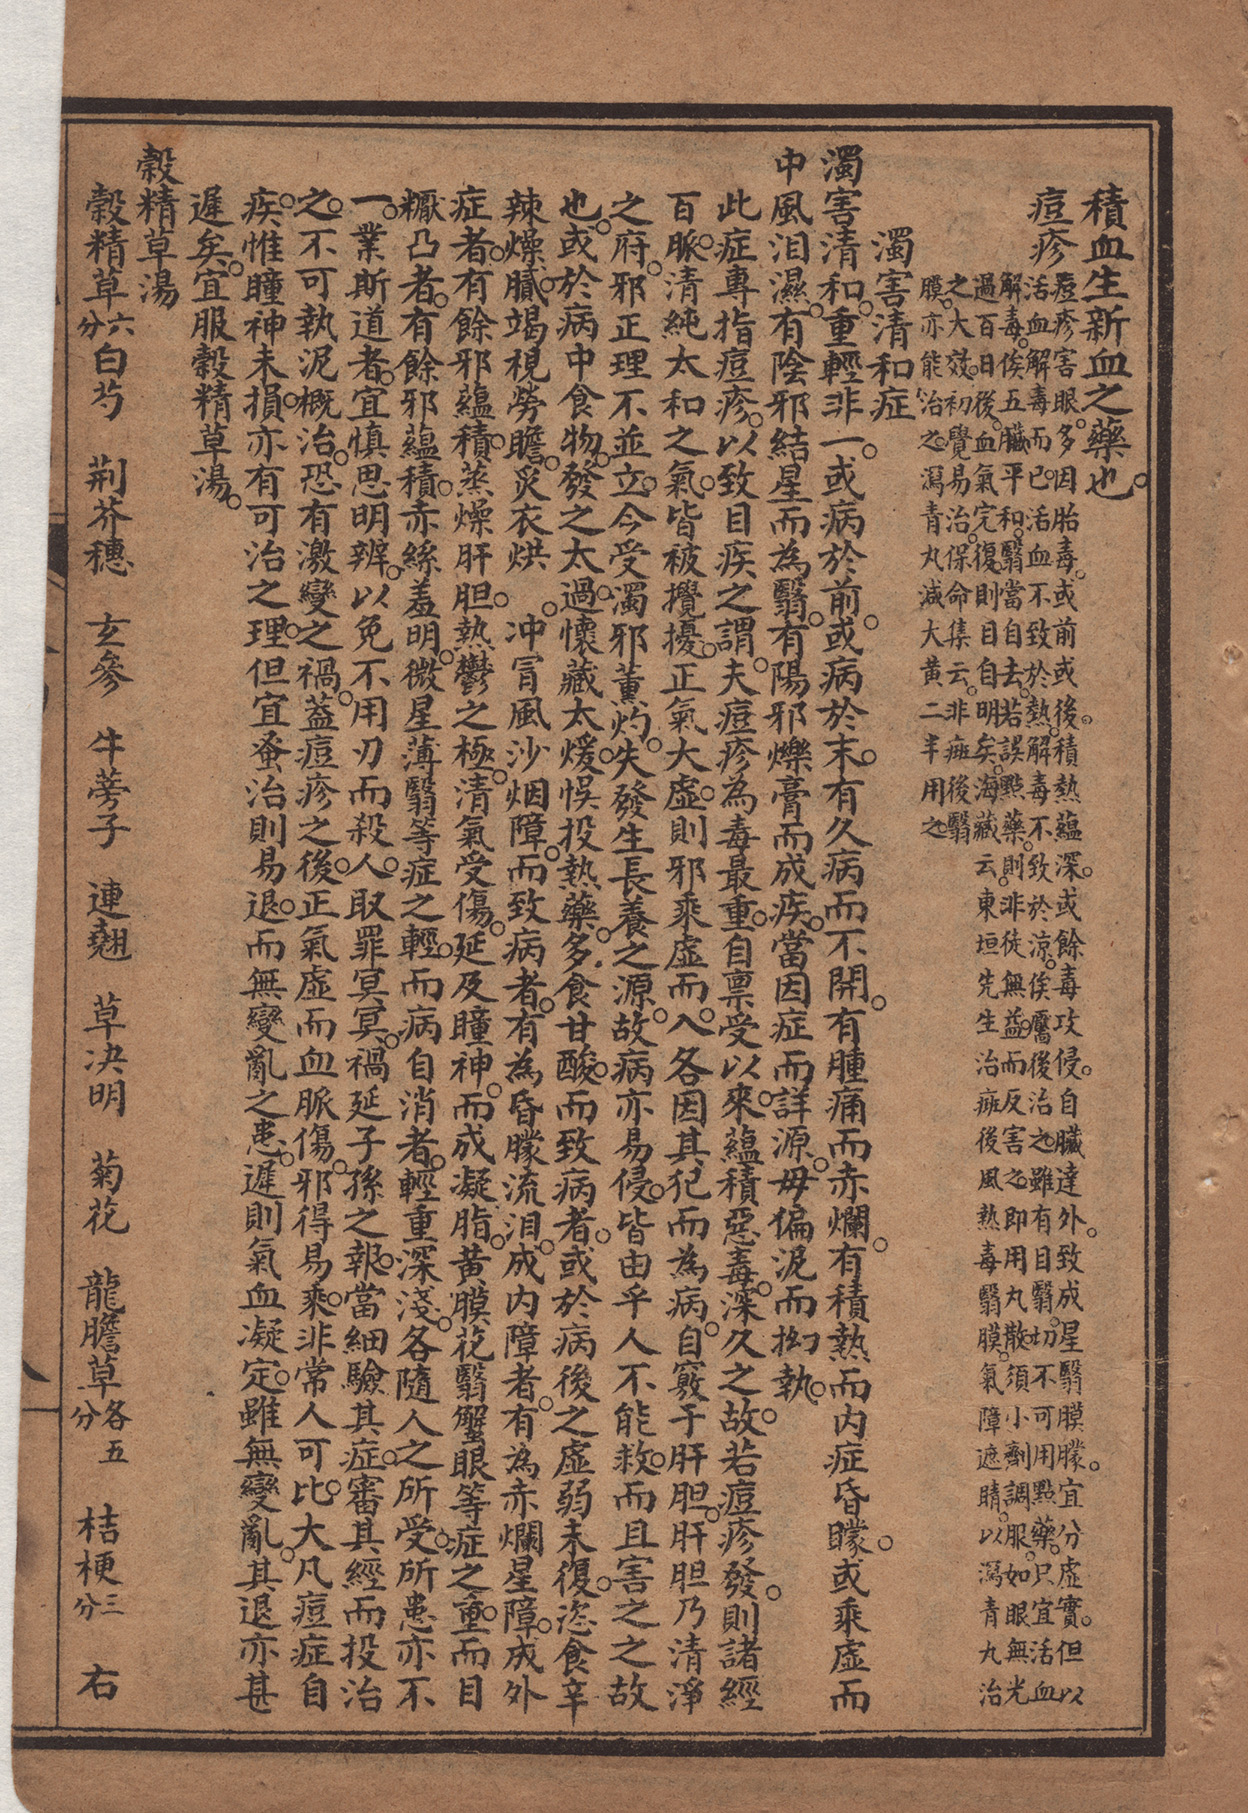 積血生新血之藥也。
痘疹
痘疹害眼。多因胎毒。或前或後。積熱蘊深。或餘毒攻侵。自臟達外。致成星翳膜朦。宜分虛實。但以
活血解毒而已。活血不致於熱。解毒不致於涼。俟靨後治之。雖有目翳。切不可用點藥。只宜活血
解毒。俟五臟平和。翳當自去。若誤點藥。則非徒無益。而反害之。即用丸散。須小劑調服。如眼無光
過百日後。血氣完復。則目自明矣。海藏云。東垣先生治痲後風熱毒翳膜。氣障遮睛。以瀉青丸治
之大效。初覺易治。保命集云。非痲後翳
膜。亦能治之。瀉青丸減大黃一半用之
濁害清和症
濁害清和。重輕非一。或病於前。或病於末。有久病而不開。有腫痛而赤爛。有積熱而內症昏矇。或乘虛而
中風泪濕。有陰邪結星而為翳。有陽邪爍膏而成疾。當因症而詳源。毋徧泥而拗執。
此症專指痘疹。以致目疾之謂。夫痘疹為毒最重。自禀受以來。蘊積惡毒。深久之故。若痘疹發。則諸經
百脈。清純太和之氣。皆被攪擾。正氣大虛。則邪乘虛而入。各因其犯而為病。自竅于肝胆。肝胆乃清淨
之府。邪正理不並立。今受濁邪薰灼。失發生長養之源。故病亦易侵。皆由乎人不能救。而且害之之故
也。或於病中食物。發之太過。懷藏太煖。悞投熱藥。多食甘酸。而致病者。或於病後之虛弱未復。恣食辛
辣燥膩。竭視勞瞻。炙衣烘。冲冒風沙烟障。而致病者。有為昏朦流泪。成內障者。有為赤爛星障。成外
症者。有餘邪蘊積。蒸燥肝胆。熱鬱之極。清氣受傷。延及瞳神。而成凝脂。黃膜花翳蟹眼等症之重。而目
糰凸者。有餘邪蘊積。赤絲羞明。微星薄翳等症之輕。而病自消者。輕重深淺。各隨人之所受。所患亦不
一。業斯道者。宜慎思明辨。以免不用刃而殺人。取罪冥冥。禍延子孫之報。當細驗其症。審其經而投治
之。不可執泥概治。恐有激變之禍。蓋痘疹之後。正氣虛而血脈傷。邪得易乘。非常人可比。大凡痘症自
疾。惟瞳神未損。亦有可治之理。但宜蚤治則易退。而無變亂之患。遲則氣血凝定。雖無變亂。其退亦甚
遲矣。宜服穀精草湯。
穀精草湯
穀精草六分 白芍 荆芥穗 玄參 牛蒡子 連翹 草決明 菊花 龍膽草各五分 桔梗三分 右